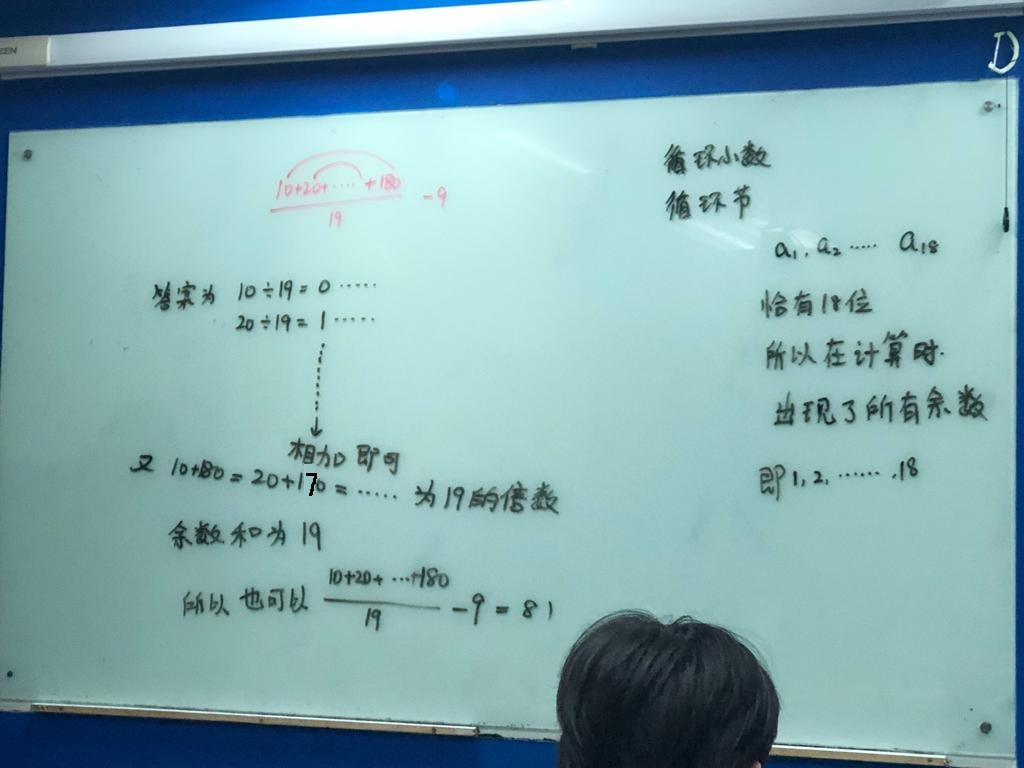 EEN
D
10+20+……+180
19
-9
答案为 10÷19=0……
20÷19=1……
相加即可
又 10+180=20+170=…… 为19的倍数
余数和为19
所以也可以 10+20+…+180
19
-9=81
循环小数
循环节
a₁, a₂ …… a₁₈
恰有18位
所以在计算时.
出现了所有余数
即1,2,……,18